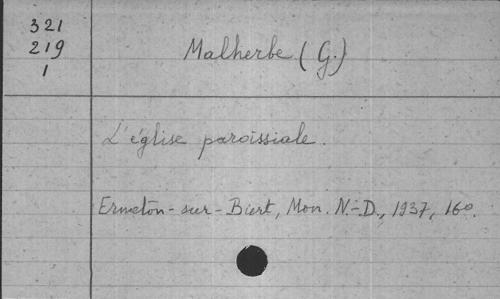 321
219
1
Malherbe (G.)
L'église paroissiale.
Ermeton-sur-Biert, Mon. N.-D., 1937, 16°.